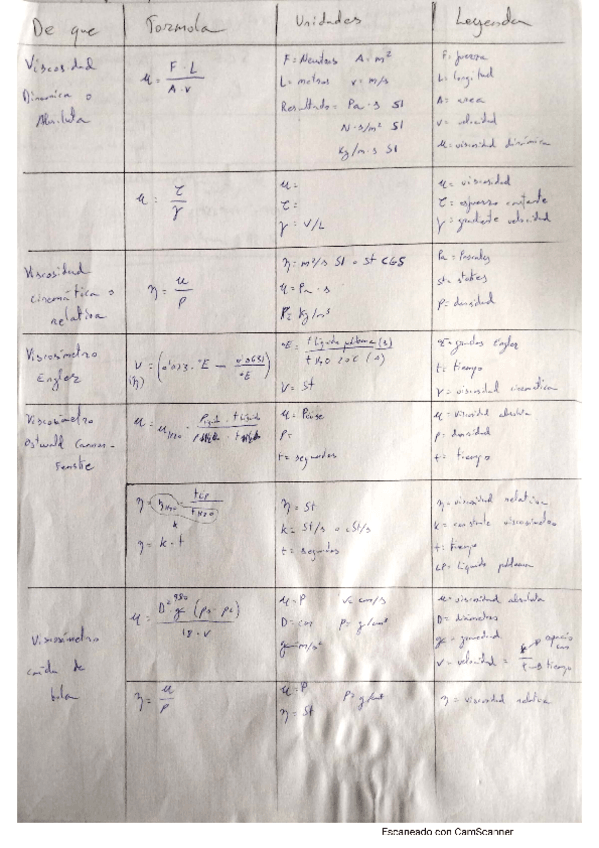 De que Formula Unidades Leyenda
Viscosidad
Dinamica o
Absoluta
μ = F · L / A · v
F = Newtons A = m²
L = metros v = m/s
Resultado = Pa · s SI
N · s/m² SI
Kg/m · s SI
F = fuerza
L = longitud
A = area
v = velocidad
μ = viscosidad dinámica
μ = τ / γ
μ =
τ =
γ = V/L
μ = viscosidad
τ = esfuerzo constante
γ = gradiente velocidad
Viscosidad
cinemática o
relativa
η = μ / ρ
η = m²/s SI o St CGS
μ = Pa · s
ρ = Kg/m³
Pa = Pascales
st = stokes
ρ = densidad
Viscosimetro
Engler
V = (0'073 · °E − 0'0631 / °E)
(η)
°E = t liquido problema (s) / t H2O 20℃ (s)
V = St
°E = grados Engler
t = tiempo
V = viscosidad cinematica
Viscosimetro
Ostwald Cannon-
Fenske
μ = μ H2O ·
μ = Poise
ρ =
t = segundos
μ = viscosidad absoluta
ρ = densidad
t = tiempo
η = η H2O · t LP / t H2O
k
η = k · t
η = St
k = St/s o cSt/s
t = segundos
η = viscosidad relativa
k = constante viscosimetro
t = tiempo
LP = Liquido problema
Viscosimetro
caida de
bola
980
μ = D² · g (ρs - ρL) / 18 · v
μ = P v = cm/s
D = cm ρ = g/cm³
g = m/s²
μ = viscosidad absoluta
D = diámetros
g = gravedad
v = velocidad = e/t → espacio cm
→ tiempo
η = μ / ρ
μ = P ρ = g/cm³
η = St
η = viscosidad relativa
Escaneado con CamScanner